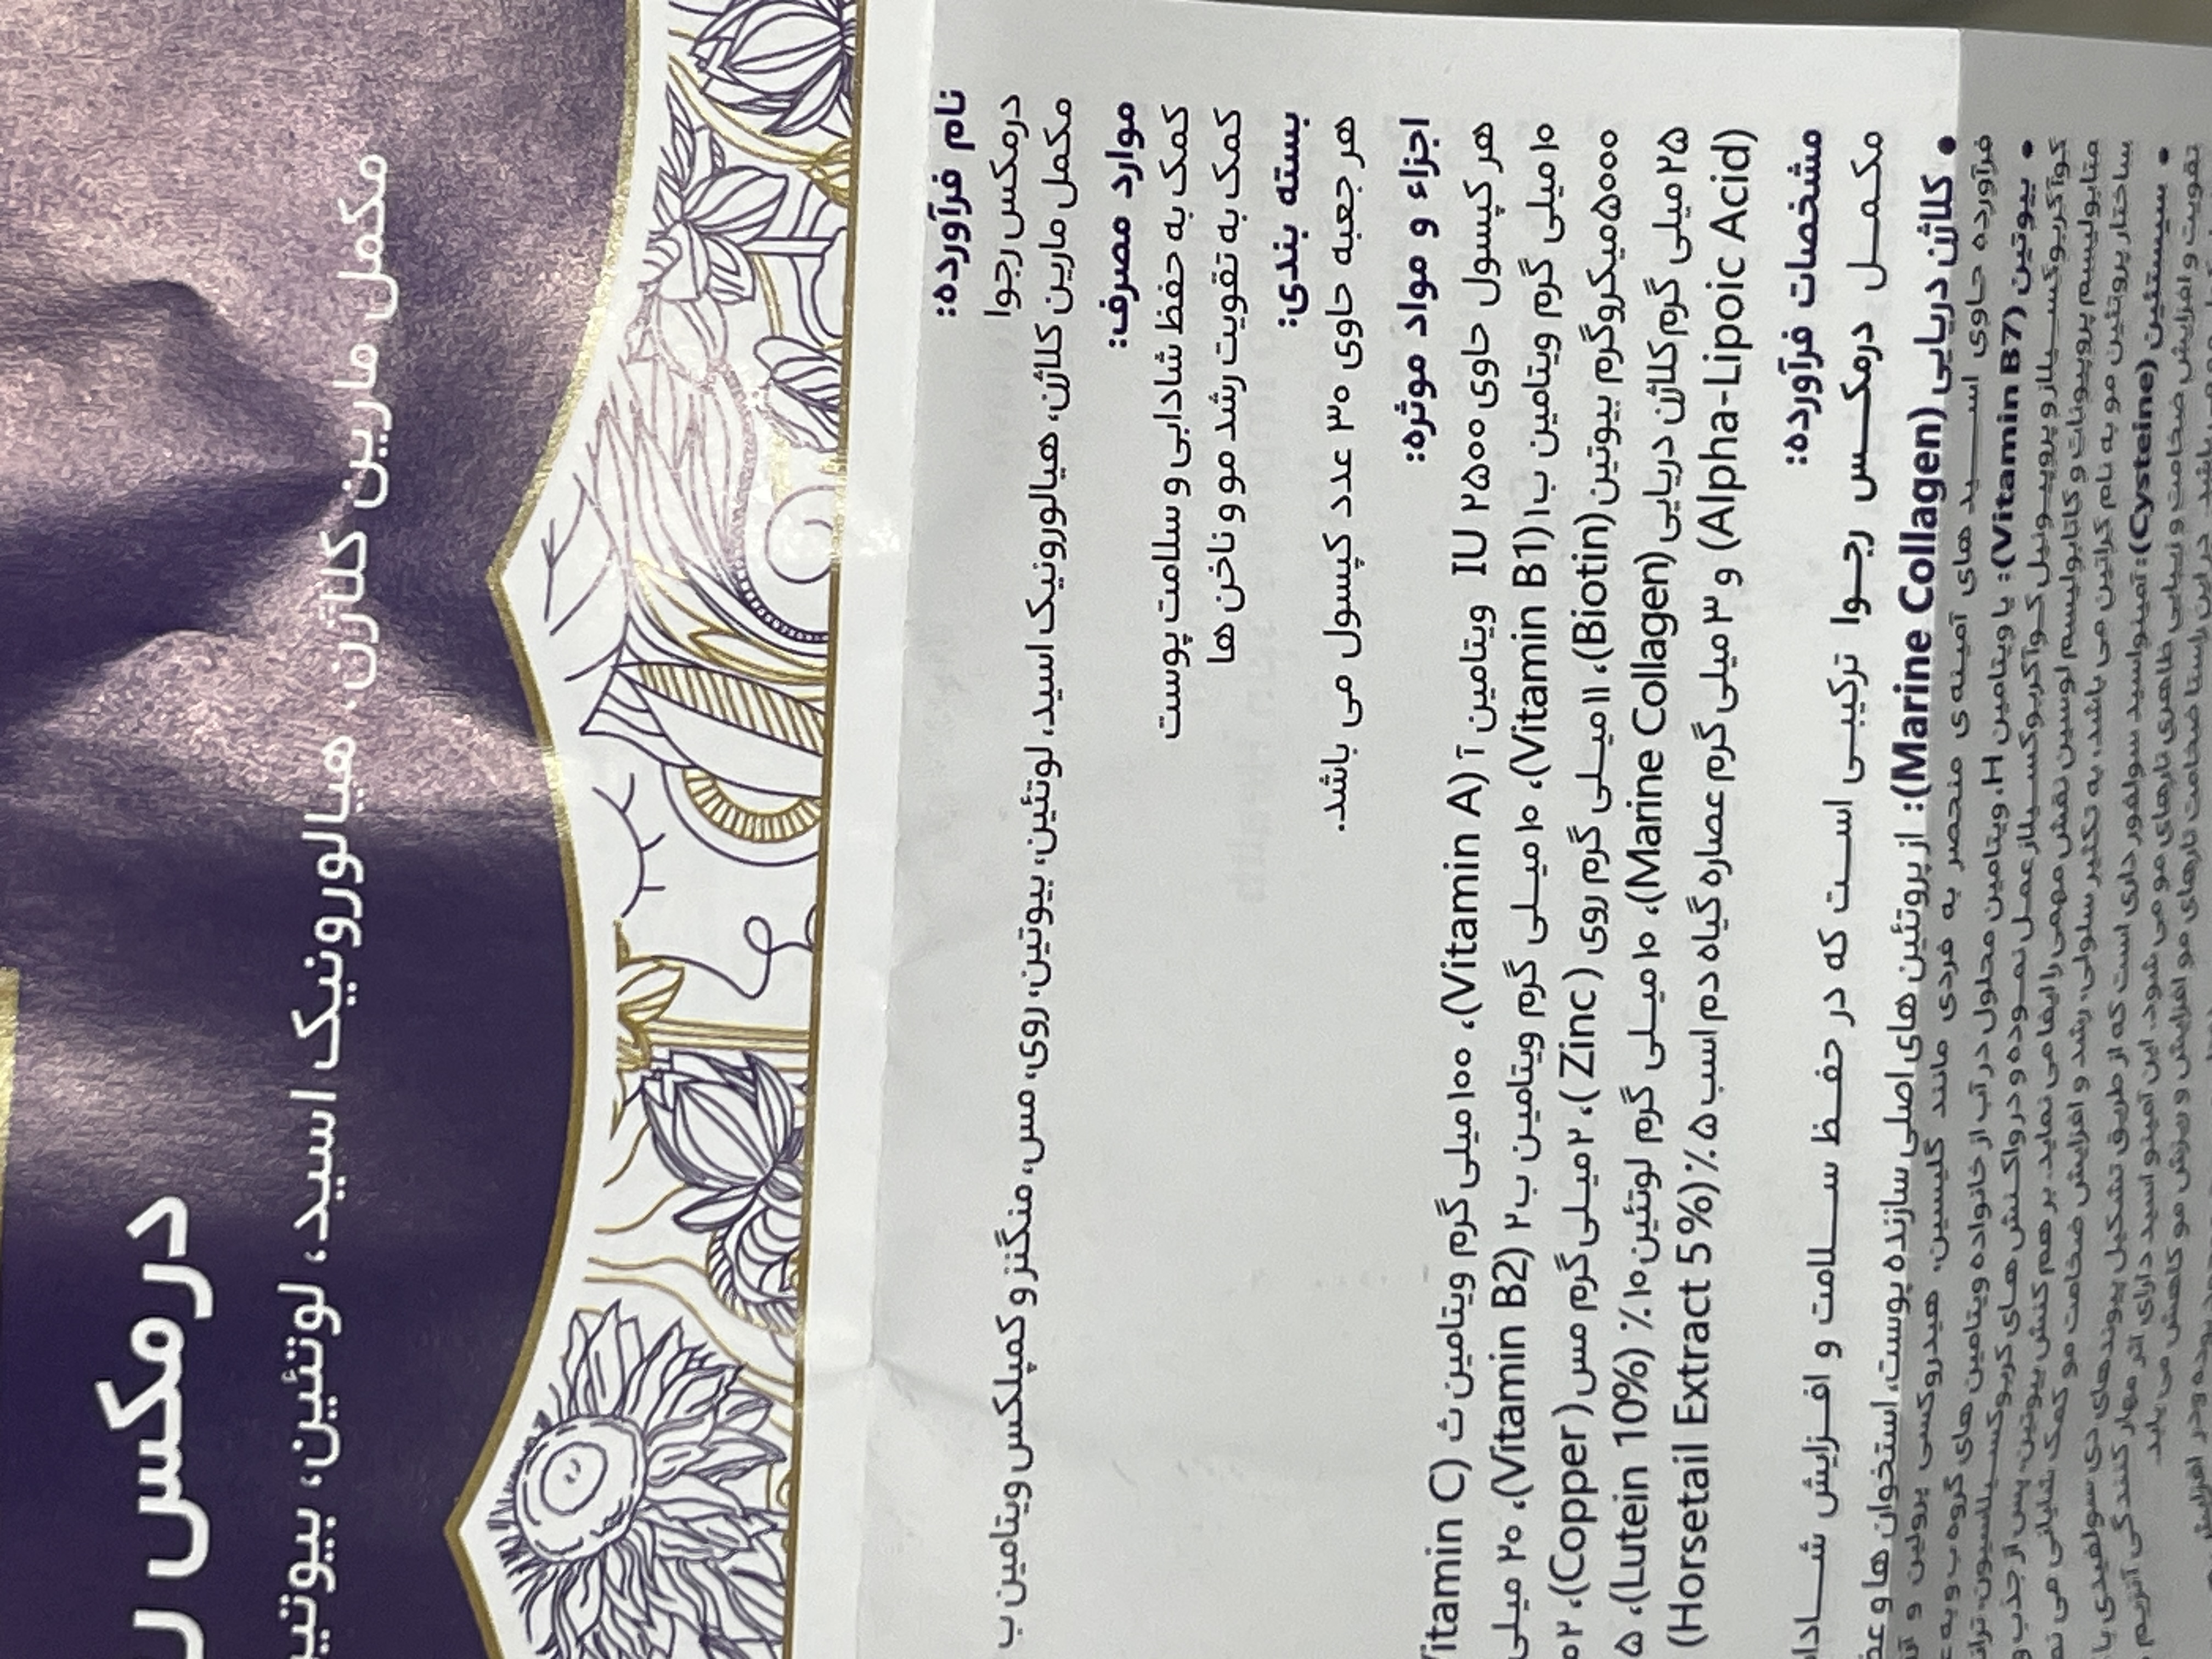 درمکس
مکمل مارین کلاژن، هیالورونیک اسید، لوتئین، بیوتین
نام فرآورده:
درمکس رجوا
مکمل مارین کلاژن، هیالورونیک اسید، لوتئین، بیوتین، روی، مس، منگنز و کمپلکس ویتامین ب
موارد مصرف:
کمک به حفظ شادابی و سلامت پوست
کمک به تقویت رشد مو و ناخن ها
بسته بندی:
هر جعبه حاوی ۳۰ عدد کپسول می باشد.
اجزاء و مواد موثره:
هر کپسول حاوی ۲۵۰۰ IU ویتامین آ (Vitamin A)، ۱۰۰ میلی گرم ویتامین ث (Vitamin C)
۱۰ میلی گرم ویتامین ب۱ (Vitamin B1)، ۱۰ میلی گرم ویتامین ب۲ (Vitamin B2)، ۲۰ میلی
۵۰۰۰میکروگرم بیوتین (Biotin)، ۱۱ میلی گرم روی (Zinc)، ۲ میلی گرم مس (Copper)، ۲
۲۵ میلی گرم کلاژن دریایی (Marine Collagen)، ۱۰ میلی گرم لوتئین ۱۰٪ (Lutein 10%)، ۵
(Alpha-Lipoic Acid) و ۳ میلی گرم عصاره گیاه دم اسب ۵٪ (Horsetail Extract 5%)
مشخصات فرآورده:
مکمل درمکس رجوا ترکیبی است که در حفظ سلامت و افزایش
• کلاژن دریایی (Marine Collagen): از پروتئین های اصلی سازنده پوست، استخوان ها و
فرآورده حاوی اسید های آمینه ی منحصر به فردی مانند گلیسین، هیدروکسی پرولین و
• بیوتین (Vitamin B7): یا ویتامین H، ویتامین محلول در آب از خانواده ویتامین های گروه ب و به
کوآکربوکسیلاز و پروپیونیل کوآکربوکسیلاز عمل نموده و در واکنش های کربوکسیلاسیون،
متابولیسم پروپیونات و کاتابولیسم لوسین نقش مهمی را ایفا می نماید. بر هم کنش بیوتین، پس از جذب و
ساختار پروتئین مو به نام کراتین می باشد، به تکثیر سلولی، رشد و افزایش ضخامت مو کمک شایانی می
• سیستئین (Cysteine): آمینواسید سولفور داری است که از طریق تشکیل پیوندهای دی سولفیدی
تقویت و افزایش ضخامت و زیبایی ظاهری تارهای مو می شود. این آمینو اسید دارای اثر مهار کنندگی آنزیم